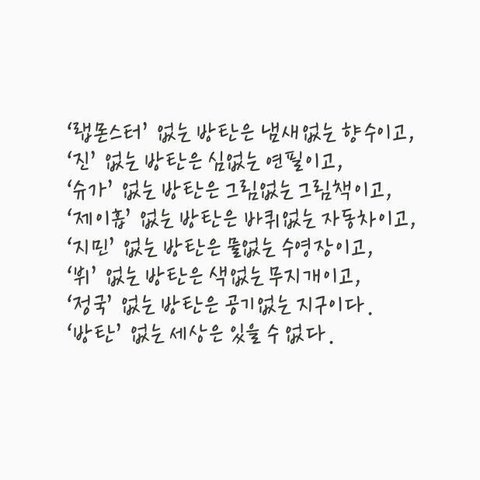 '랩몬스터' 없는 방탄은 냄새없는 향수이고,
'진' 없는 방탄은 심없는 연필이고,
'슈가' 없는 방탄은 그림없는 그림책이고,
'제이홉' 없는 방탄은 바퀴없는 자동차이고,
'지민' 없는 방탄은 물없는 수영장이고,
'뷔' 없는 방탄은 색없는 무지개이고,
'정국' 없는 방탄은 공기없는 지구이다.
'방탄' 없는 세상은 있을 수 없다.